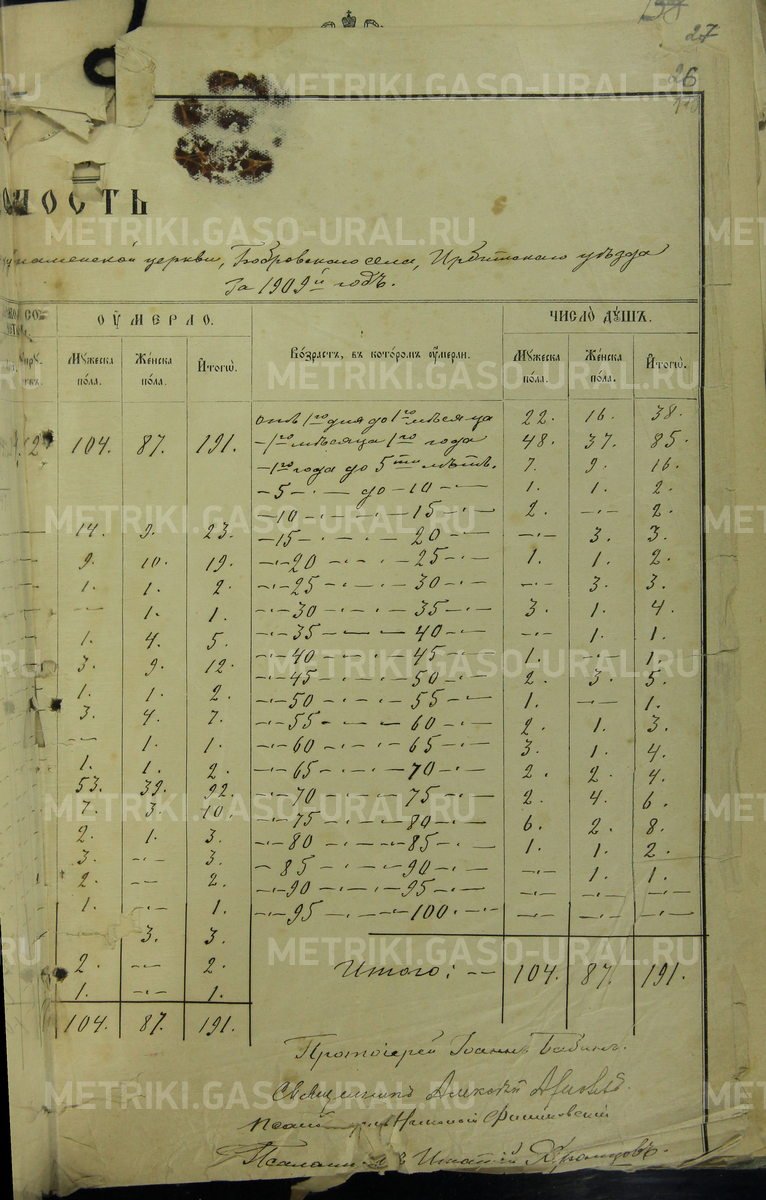 27
26
ность
знаменской церкви, Бобровскаго села, Ирбитскаго уѣзда
За 1909й годъ.
ОУМЕРЛО. ЧИСЛО ДУШЪ.
Мужеска пола. Женска пола. Итого. Возрастъ, въ которомъ умерли. Мужеска пола. Женска пола. Итого.
отъ 1го дня до 1го мѣсяца 22. 16. 38.
104. 87. 191. — 1го мѣсяца 1го года 48. 37. 85.
— 1го года до 5ти лѣтъ. 7. 9. 16.
— 5 — до — 10 — 1. 1. 2.
— 10 — 15 — 2. — 2.
14. 9. 23. — 15 — 20 — — 3. 3.
9. 10. 19. — 20 — 25 — 1. 1. 2.
1. 1. 2. — 25 — 30 — — 3. 3.
— 1. 1. — 30 — 35 — 3. 1. 4.
1. 4. 5. — 35 — 40 — — 1. 1.
3. 9. 12. — 40 — 45 — 1. — 1.
1. 1. 2. — 45 — 50 — 2. 3. 5.
3. 4. 7. — 50 — 55 — 1. — 1.
— 1. 1. — 55 — 60 — 2. 1. 3.
1. 1. 2. — 60 — 65 — 3. 1. 4.
53. 39. 92. — 65 — 70 — 2. 2. 4.
7. 3. 10. — 70 — 75 — 2. 4. 6.
2. 1. 3. — 75 — 80 — 6. 2. 8.
3. — 3. — 80 — 85 — 1. 1. 2.
2. — 2. — 85 — 90 — — 1. 1.
1. — 1. — 90 — 95 — — — —
— 3. 3. — 95 — 100. — — — —
2. — 2. Итого: — 104. 87. 191.
1. — 1.
104. 87. 191.
Протоіерей Іоаннъ Бабинъ.
Священникъ Алексѣй
Николай
Псалом Игнатій
METRIKI.GASO-URAL.RU